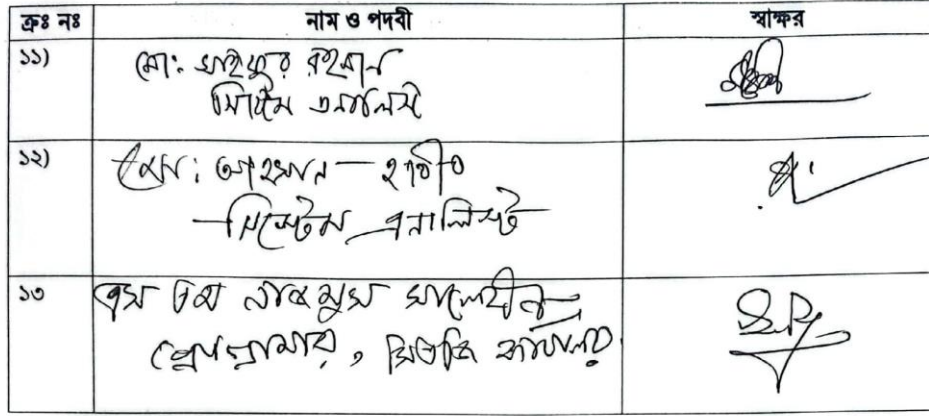 ক্রঃ নঃ নাম ও পদবী স্বাক্ষর
১১) মো: সাইফুর রহমান
সিস্টেম এনালিস্ট
১২) মো: আহসান হাবীব
সিস্টেম এনালিস্ট
১৩ এস এম নাজমুস সালেহীন
প্রোগ্রামার, সিএজি কার্যালয়